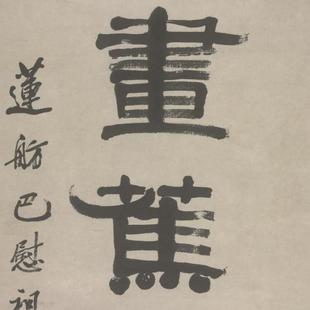 畫蕉
蓮舫巴慰祖